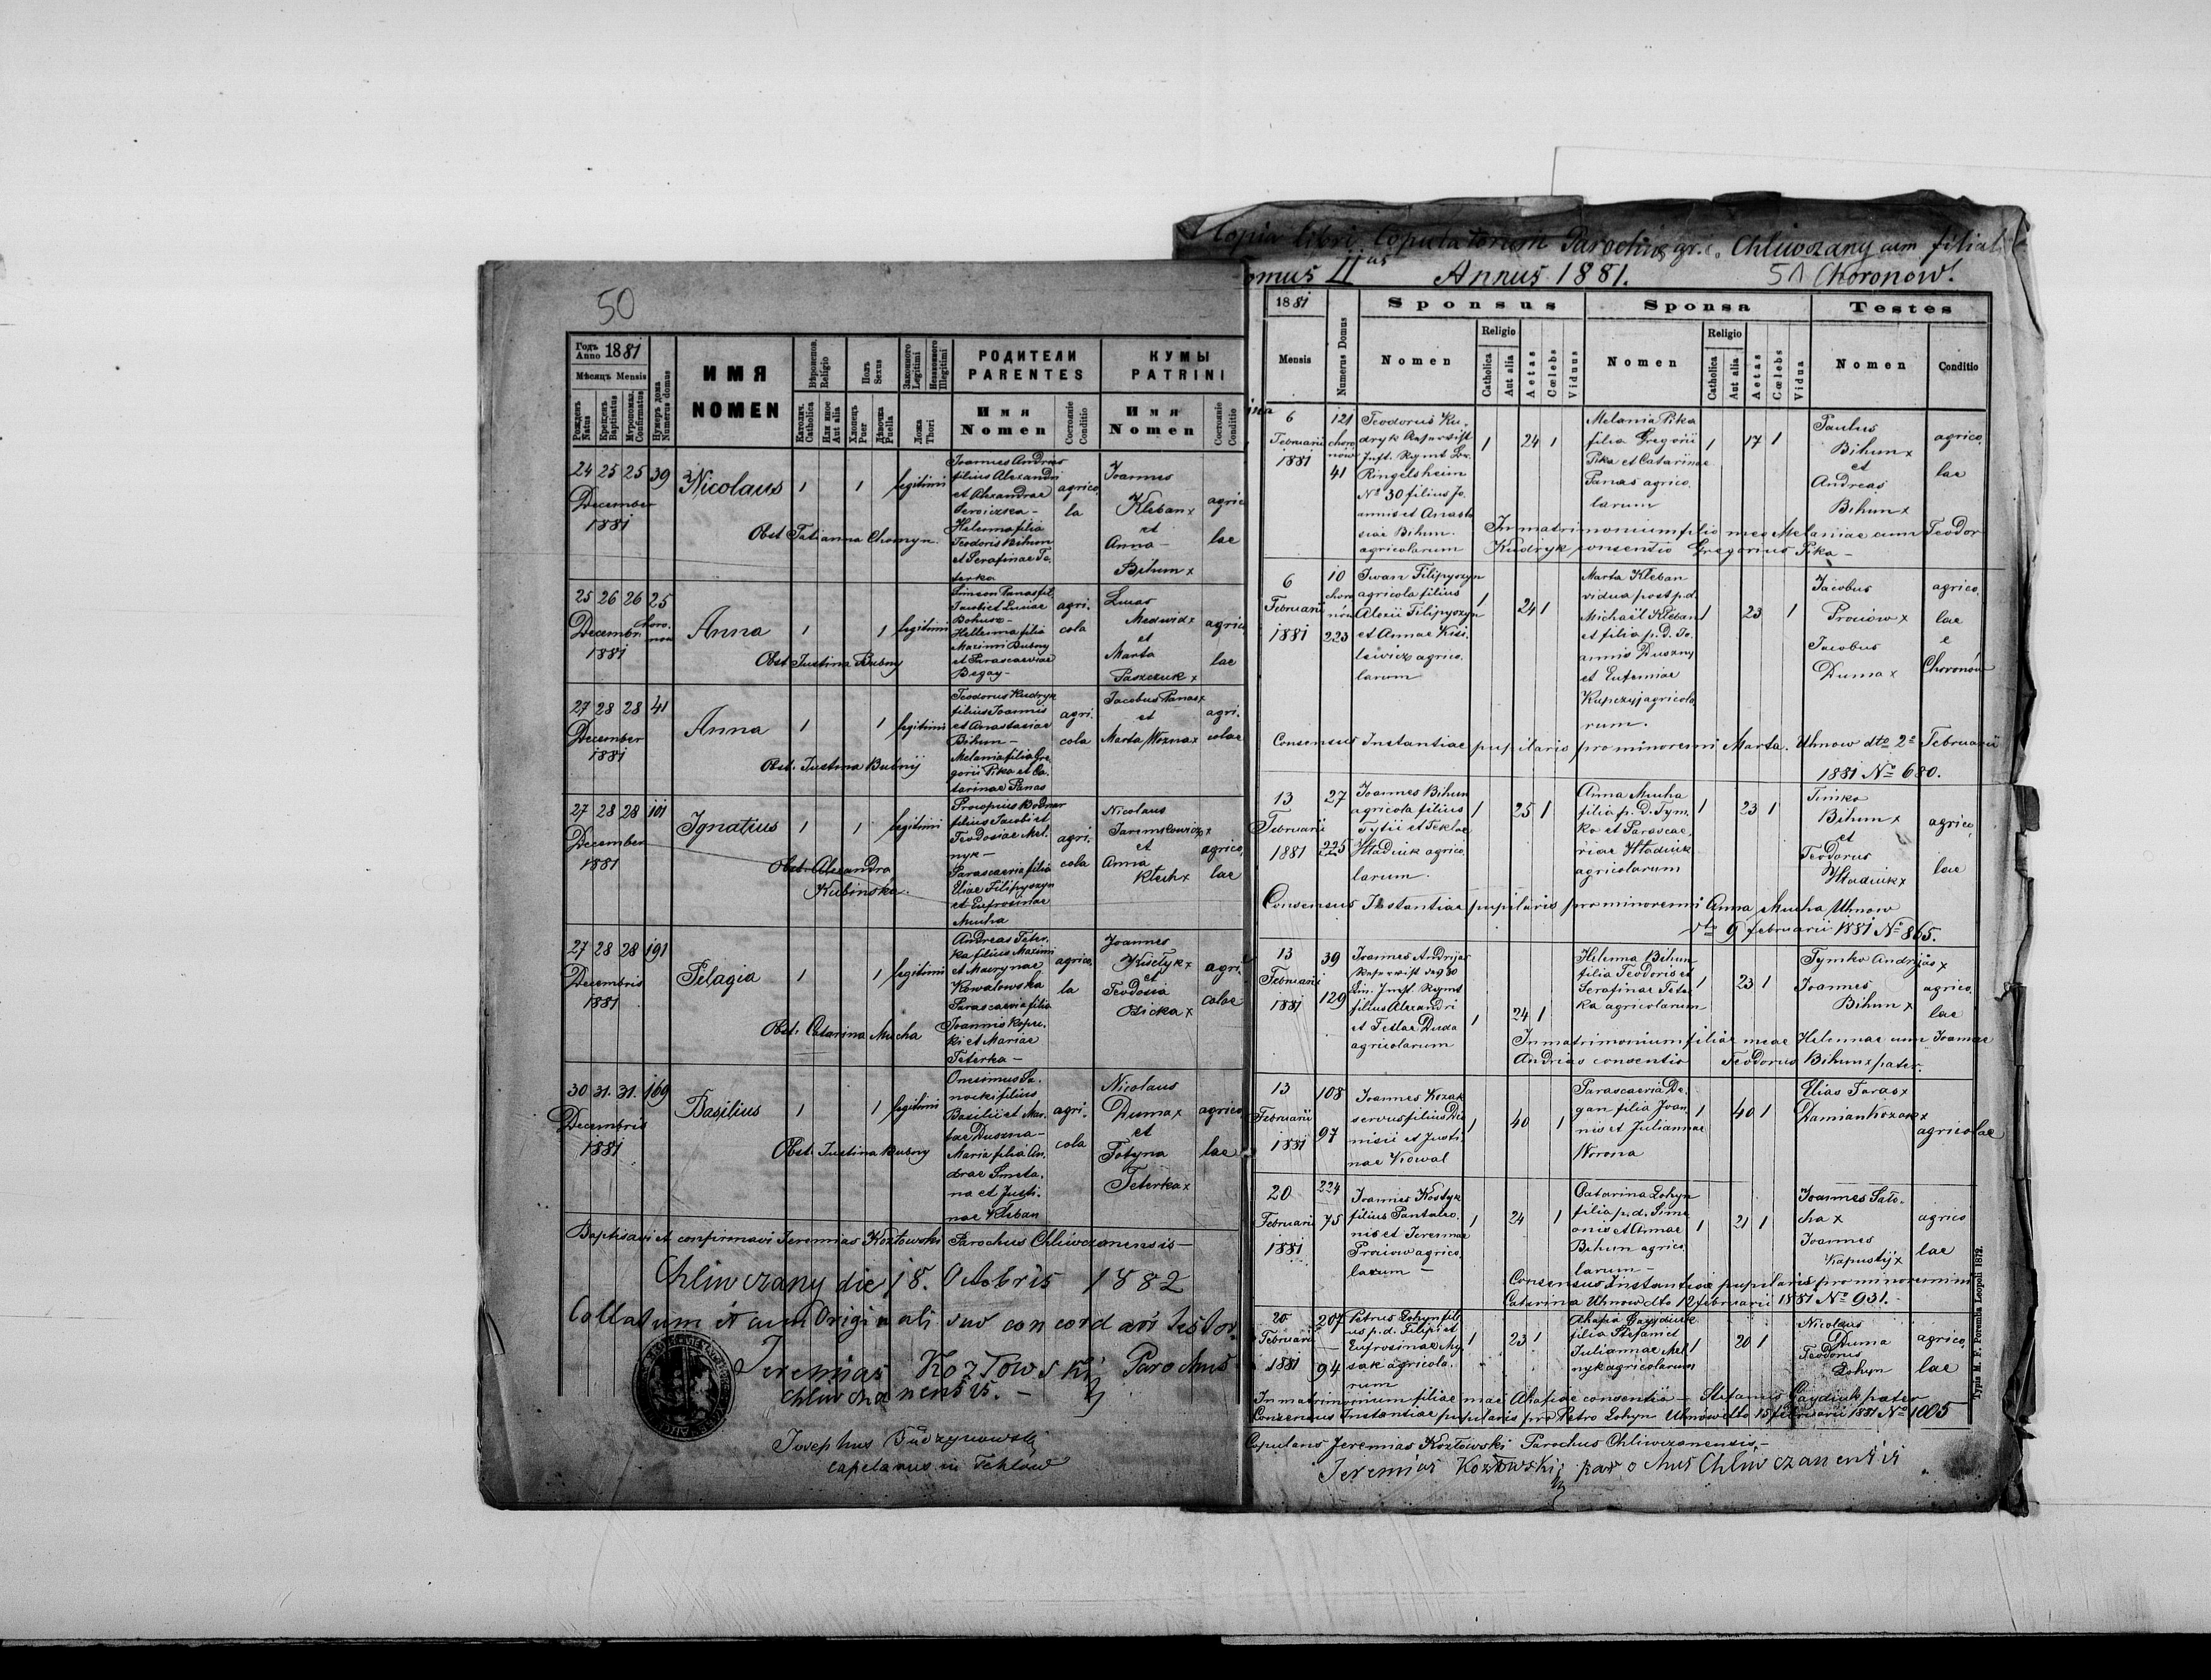 50
Годъ Anno 1881
Мѣсяцъ Mensis
Рожденъ Natus
Крещенъ Baptisatus
Мѵропомаз. Confirmatus
Нумеръ дома Numerus domus
ИМЯ
NOMEN
Вѣроисповѣд. Religio
Католич. Catholica
Или иное Aut alia
Полъ Sexus
Хлопецъ Puer
Дѣвочка Puella
Законного Legitimi
Незаконного Illegitimi
Ложа Thori
РОДИТЕЛИ
PARENTES
Имя
Nomen
Состояніе Conditio
КУМЫ
PATRINI
Имя
Nomen
Состояніе Conditio
24 25 25 39
December
1881
Nicolaus 1 1 legitimi
Obst Tatianna Chomyn
Joannes Andrias
filius Alexandri
et Alexandrae
Helenna filia
Teodoris Bihun
et Serafinae Te-
terka
agrico-
la
Joannes
Kleban x
et
Anna
Bihun x
agrico
lae
25 26 26 25
Decembr. Choro-
now
1881
Anna 1 1 legitimi
Obst Justina Bubny
Simeon Panas fil.
Jacobi et Luciae
Bohusz -
Hellenna filia
Maximi Bubny
et Parascaeviae
Begay -
agri-
cola
Lucas
Medwid x
et
Marta
Paszczuk x
agrico
lae
27 28 28 41
December
1881
Anna 1 1 legitimi
Obst. Justina Bubnij
Teodorus Kudryk
filius Joannis
et Anastasiae
Bihun -
Melania filia Gre-
gorii Pika et Ca-
tarinae Panas
agri-
cola
Jacobus Panas x
et
Marta Wozna x
agri-
colae
27 28 28 101
December
1881
Ignatius 1 1 legitimi
Obst. Alexandra
Kubinska.
Procopius Bodnar
filius Jacobi et
Teodosiae Mel-
nyk -
Parascaevia filia
Eliae Filipyszyn
et Eufrosinae
Mucha
agri-
cola
Nicolaus
Jaremkowicz x
et
Anna
Klech x
agrico-
lae
27 28 28 191
Decembris
1881
Pelagia 1 1 legitimi
Obst. Catarina Mucha
Andreas Teter-
ka filius Maximi
et Marynae
Kowalowska
Parascaevia filia
Joannis Kope-
ki et Mariae
Teterka -
agrico-
la
Joannes
Kustyk x
et
Teodosia
Bicka x
agri-
colae
30 31. 31. 169
Decembris
1881
Basilius 1 1 legitimi
Obst. Justina Bubny
Onesimus Sa-
nocki filius
Basilii et Mar-
tae Duszna -
Maria filia An-
dreae Smeta-
na et Justi-
nae Kleban
agri-
cola
Nicolaus
Duma x
et
Fotyna
Teterka x
agrico
lae
Baptisavi et confirmavi Jeremias Kozłowski Parochus Chliwczanensis -
Chliwczany die 18. Octobris 1882
Collatum et cum Originali suo concordari testor.
Jeremias Kozłowski Parochus
Chliwczanensis. -
Josephus
capelanus in Tehlow
Copia libri Copulatorum Parochiae gr. c. Chliwczany cum filial.
omus IIus Annus 1881. 51 Choronow.
1881
Mensis
Numerus Domus
Sponsus
Nomen
Religio
Catholica
Aut alia
Aetas
Cœlebs
Viduus
Sponsa
Nomen
Religio
Catholica
Aut alia
Aetas
Cœlebs
Vidua
Testes
Nomen
Conditio
6
Februarii
1881
121
choro
now
41
Teodorus Ku-
dryk Reservist
Inft. Rgmt Br.
Ringelsheim
No 30 filius Jo-
annis et Anasta
siae Bihun
agricolarum
1 24 1
Melania Pika
filia Gregorii
Pika et Catarinae
Panas agrico-
larum
1 17 1
Paulus
Bihun x
et
Andreas
Bihun x
agrico-
lae
In matrimonium filio meo Melaniae cum Teodor
Kudryk consentio Gregorius Pika -
6
Februarii
1881
10
choro
nów
223
Iwan Filipyszyn
agricola filius
Alexii Filipyszyn
et Annae Kisi-
lewicz agrico-
larum
1 24 1
Marta Kleban
vidua post p.d.
Michaël Kleban
et filia p. D. Jo-
annis Duszny
et Eufemiae
Kupczyj agricola
rum.
1 23 1
Jacobus
Prouów x
Jacobus
Duma x
agrico-
lae
e
Choronów
Consensus Instantiae pupilaris pro minorenni Marta. Uhnow dto 2o Februarii
1881 No 680.
13
Februarii
1881
27
225
Joannes Bihun
agricola filius
Tytii et Teklae
Hładiuk agrico-
larum.
1 25 1
Anna Mucha
filia p. D. Tym-
ko et Parascae-
viae Hładiuk
agricolarum
1 23 1
Timko
Bihun x
et
Teodorus
Hładiuk x
agrico-
lae
Consensus Instantiae pupilaris pro minorenni Anna Mucha Uhnow
dto 9 februarii 1881 No 865.
13
Februarii
1881
39
129
Joannes Andrijas
Reservist des 30
Lin. Inft. Rgmt
filius Alexandri
et Teklae Duda
agricolarum
1 24 1
Helenna Bihun
filia Teodoris et
Serafinae Teter-
ka agricolarum
1 23 1
Tymko Andrijas x
Joannes
Bihun x
agrico-
lae
In matrimonium filiae meae Helennae cum Joannae
Andrias consentio Teodorus Bihun x pater.
13
Februarii
1881
108
97
Joannes Kozak
servus filius Dio
nisii et Justi-
nae Kowal
1 40 1
Parascaevia De-
gan filia Joan-
nis et Juliannae
Worona
1 40 1
Elias Taras x
Damian Kozak x
agricolae
20
Februarii
1881
224
75
Joannes Kostyk
filius Pantaleo-
nis et Jerennae
Prouow agrico-
larum -
1 24 1
Catarina Lohyn
filia p.d. Sime-
onis et Annae
Bihun agrico-
larum -
1 21 1
Joannes Sało-
cha x
Joannes
Kapustij x
agrico
lae
Consensus Instantiae pupilaris pro minorenni
Catarina Uhnow dto 12 februarii 1881 No 931. -
20
Februarii
1881
207
94
Petrus Lohyn fili-
us p.d. Filipi et
Eufrosinae Hy-
sak agricola-
rum
1 23 1
Ahafia Gaydiuk
filia Stefani et
Juliannae Mel-
nyk agricolarum
1 20 1
Nicolaus
Duma
Teodorus
Lohyn
agrico-
lae
In matrimonium filiae mae Ahafiae consentio - Stefanus Gaydiuk pater
Consensus Instantiae pupilaris pro Petro Lohyn Uhnów dto 15 februarii 1881 No 1005
Copulans Jeremias Kozłowski Parochus Chliwczanensis -
Jeremias Kozłowski parochus Chliwczanensis
Typis M. F. Poremba Leopoli 1872.